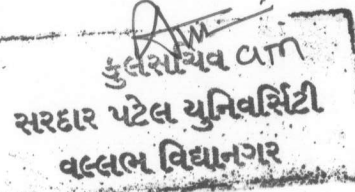 કુલસચિવ
સરદાર પટેલ યુનિવર્સિટી
વલ્લભ વિદ્યાનગર